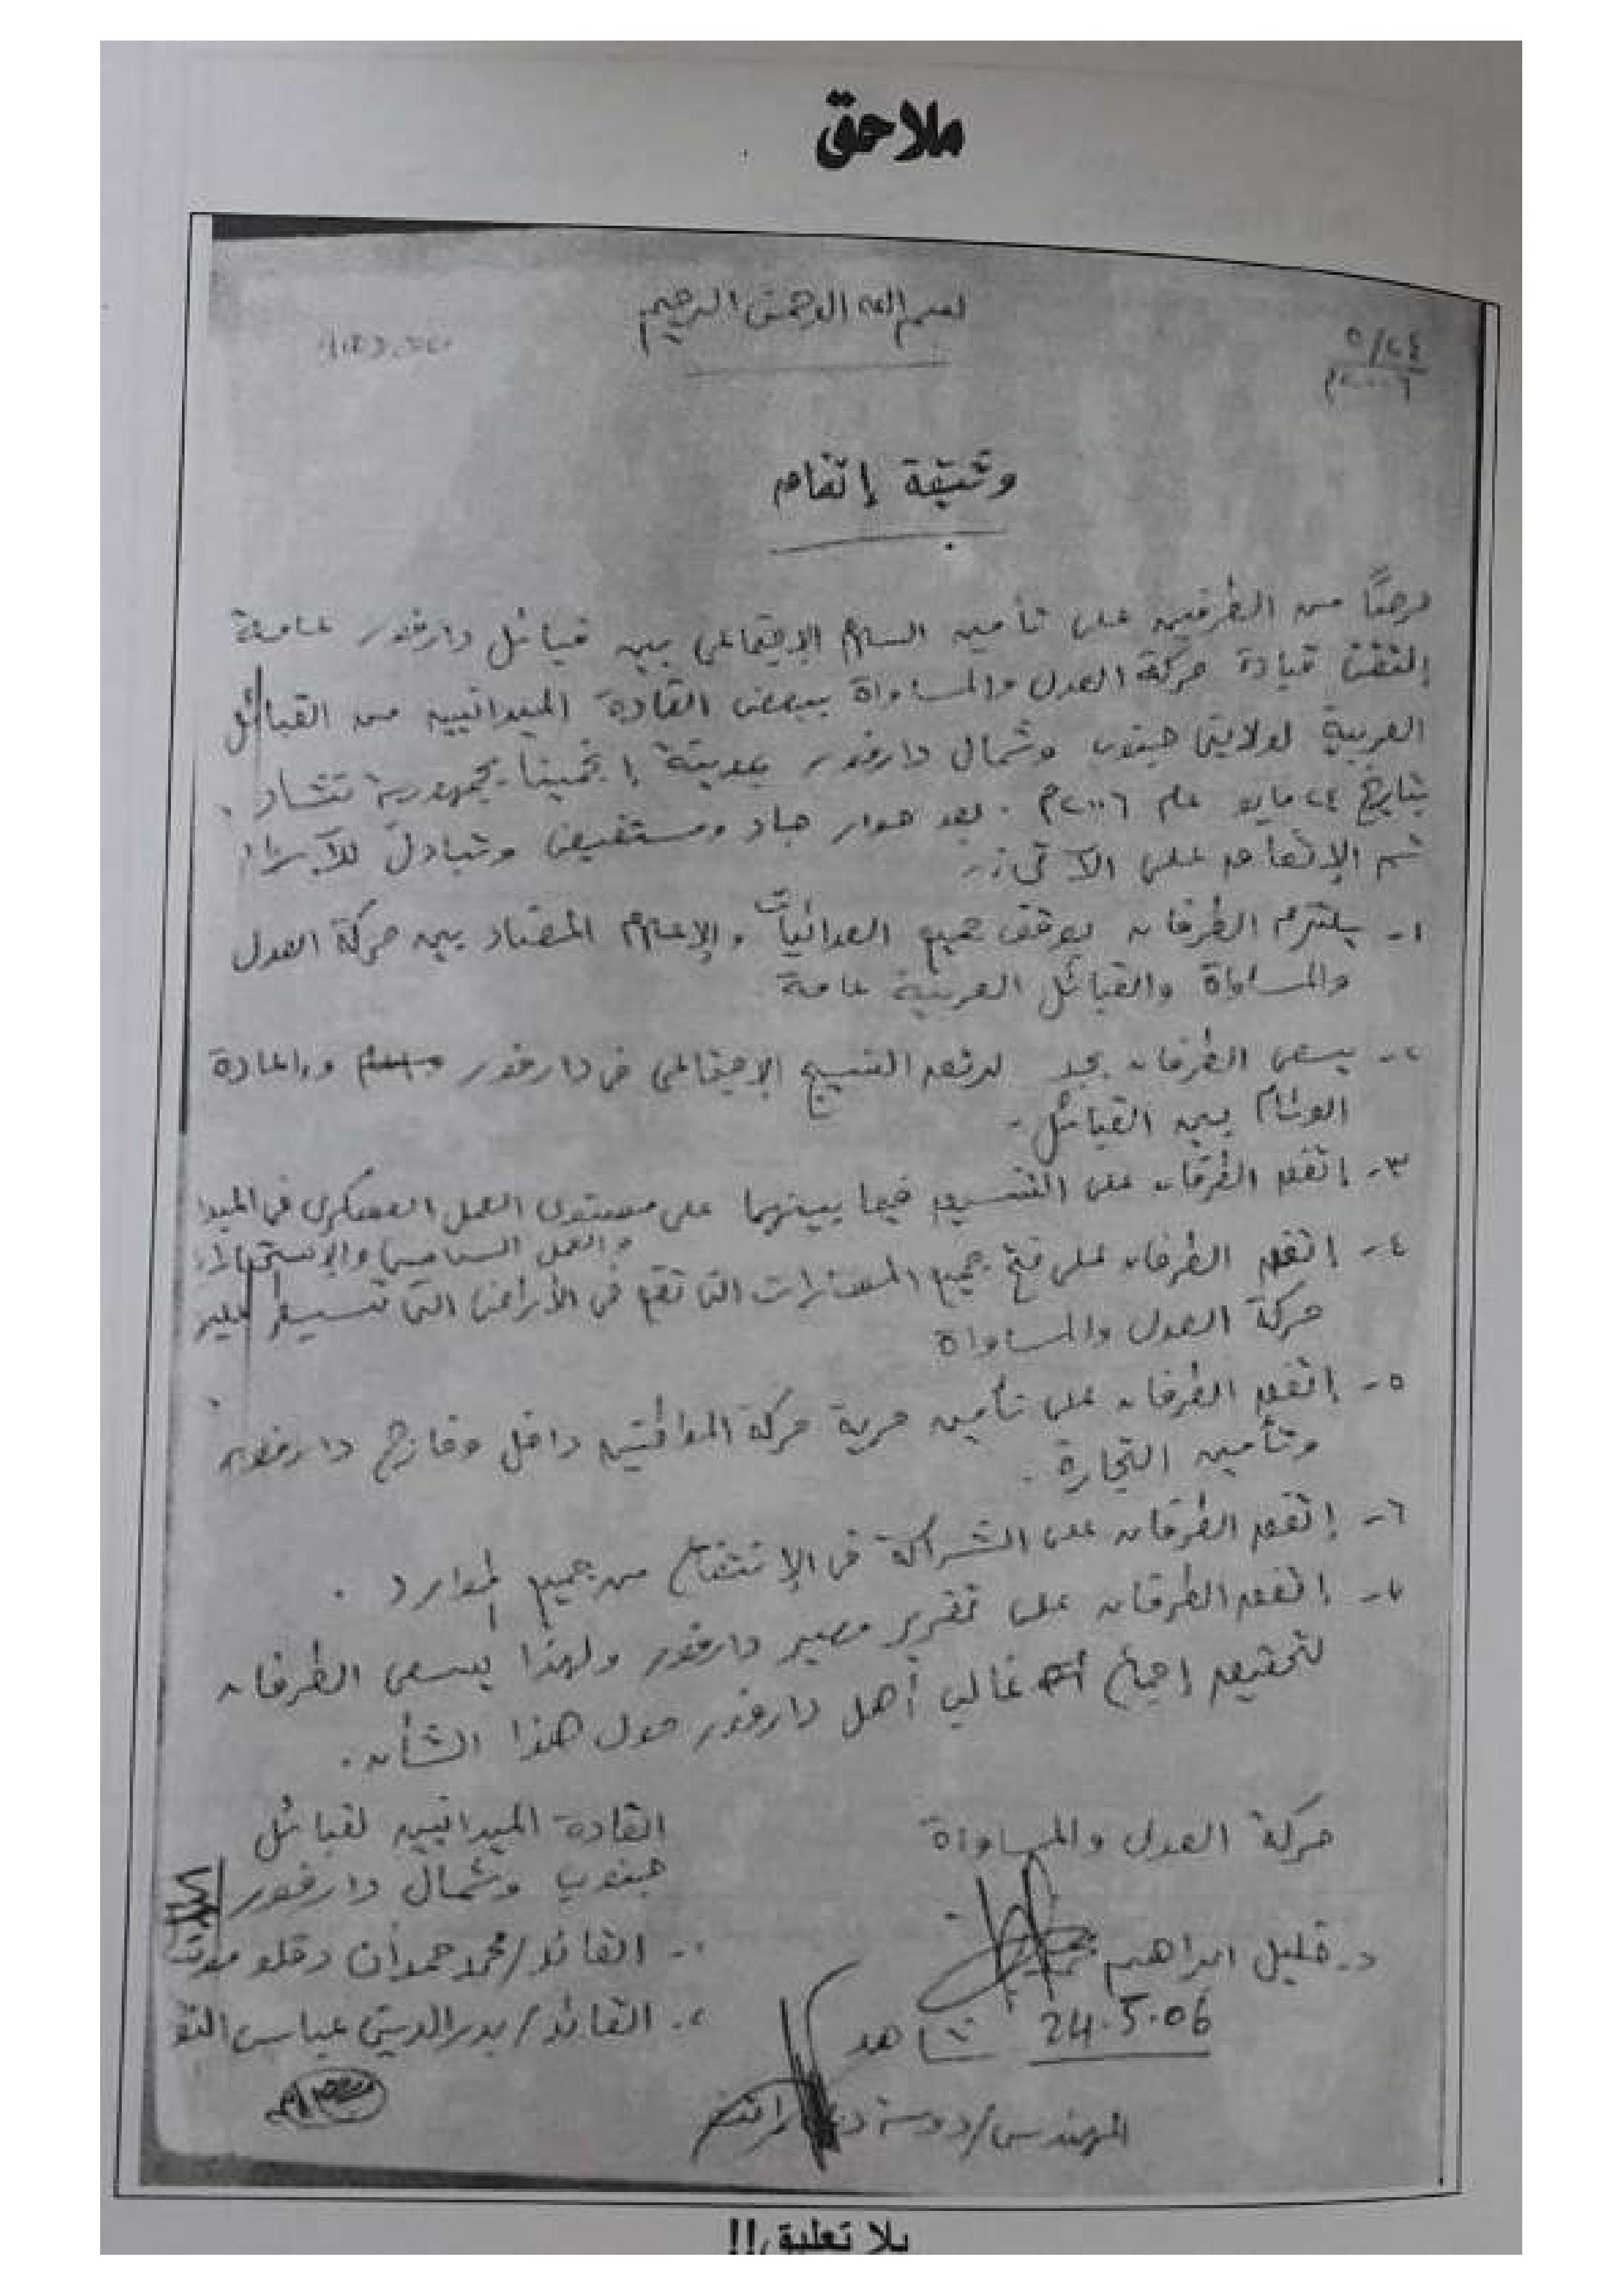 ملاحق
بسم الله الرحمن الرحيم
٥/٢٤
٢٠٠٦م
وثيقة إتفاق
حرصاً من الطرفين على تأمين السلام الإجتماعى بين قبائل دارفور عامة
إلتقت قيادة حركة العدل والمساواة ببعض القادة الميدانيين من القبائل
العربية لولايتى جنوب وشمال دارفور بمدينة إنجمينا بجمهورية تشاد.
بتاريخ ٢٤ مايو عام ٢٠٠٦م. بعد حوار جاد ومستفيض وتبادل للآراء
تم الإتفاق على الآتى:-
١- يلتزم الطرفان بوقف جميع العدائيات والإعلام المضاد بين حركة العدل
والمساواة والقبائل العربية عامة
٢- يسعى الطرفان بجد لرتق النسيج الإجتماعى فى دارفور وإعادة
الوئام بين القبائل.
٣- إتفق الطرفان على التنسيق فيما بينهما على مستوى العمل العسكرى فى الميدا
والعمل السياسى والإستخبارات
٤- إتفق الطرفان على فتح جميع المسارات التى تقع فى الأراضى التى تسيطر عليه
حركة العدل والمساواة
٥- إتفق الطرفان على تأمين حرية حركة المواطنين داخل وخارج دارفور
وتأمين التجارة.
٦- إتفق الطرفان على الشراكة فى الإنتفاع من جميع الموارد.
٧- إتفق الطرفان على تقرير مصير دارفور ولهذا يسعى الطرفان
لتحقيق إجماع غالب أهل دارفور حول هذا الشأن.
حركة العدل والمساواة
القادة الميدانيين لقبائل
جنوب وشمال دارفور
د. خليل ابراهيم محمد
24.5.06
١- القائد/محمد حمدان دقلو
٢- القائد/بدرالدين عباس
شاهد
المهندس/دوسة
بلا تعليق!!